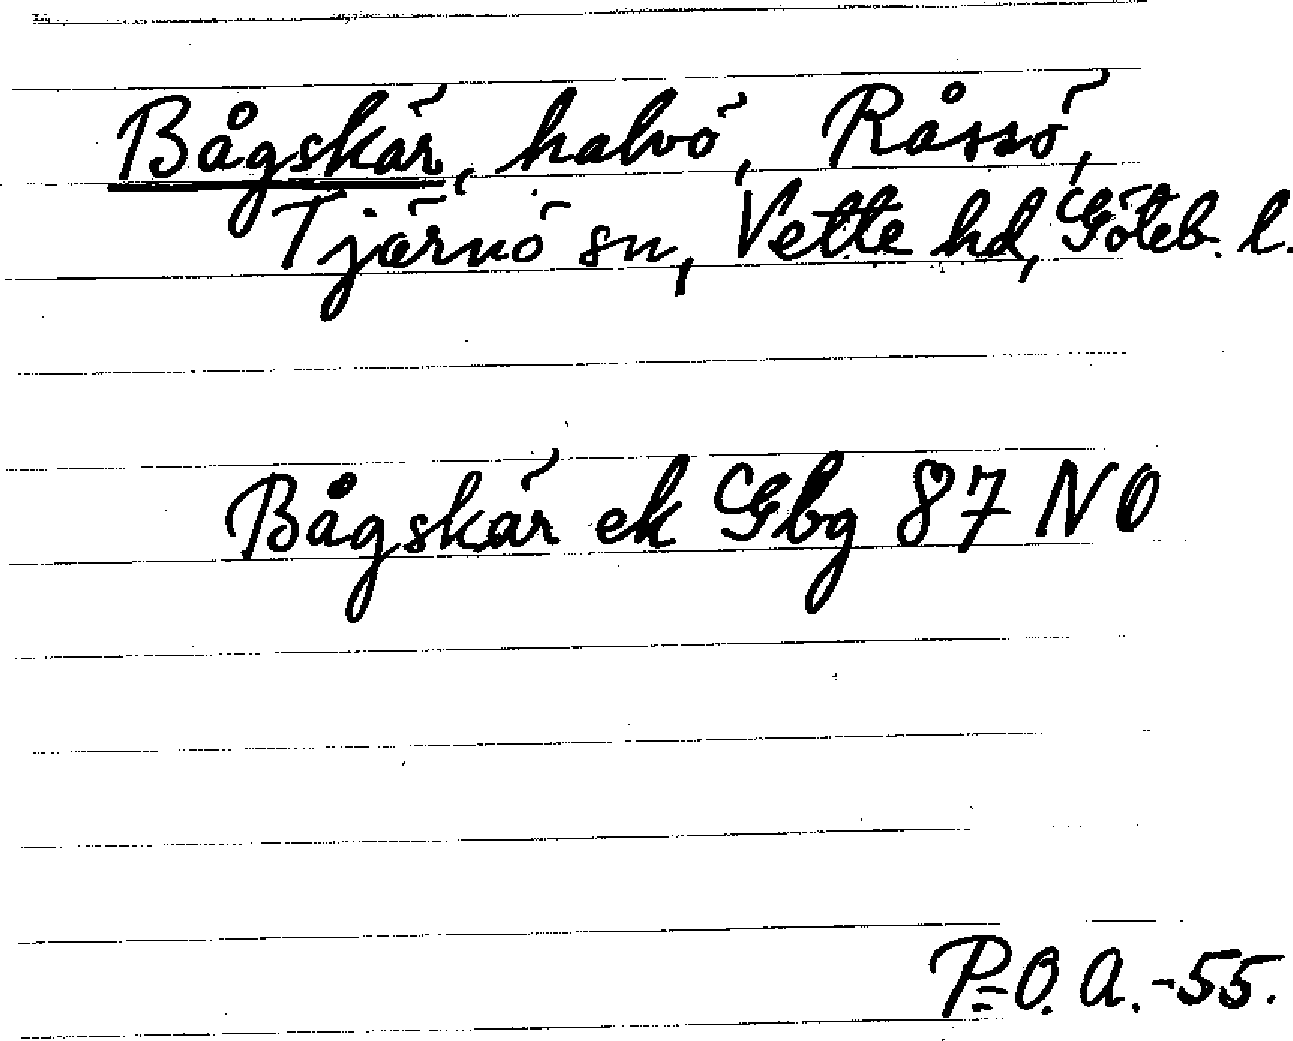 Bågskär, halvö, Råssö,
Tjärnö sn, Vette hd, Göteb. l.
Bågskär ek Gbg 87 NO
P-O. A. -55.